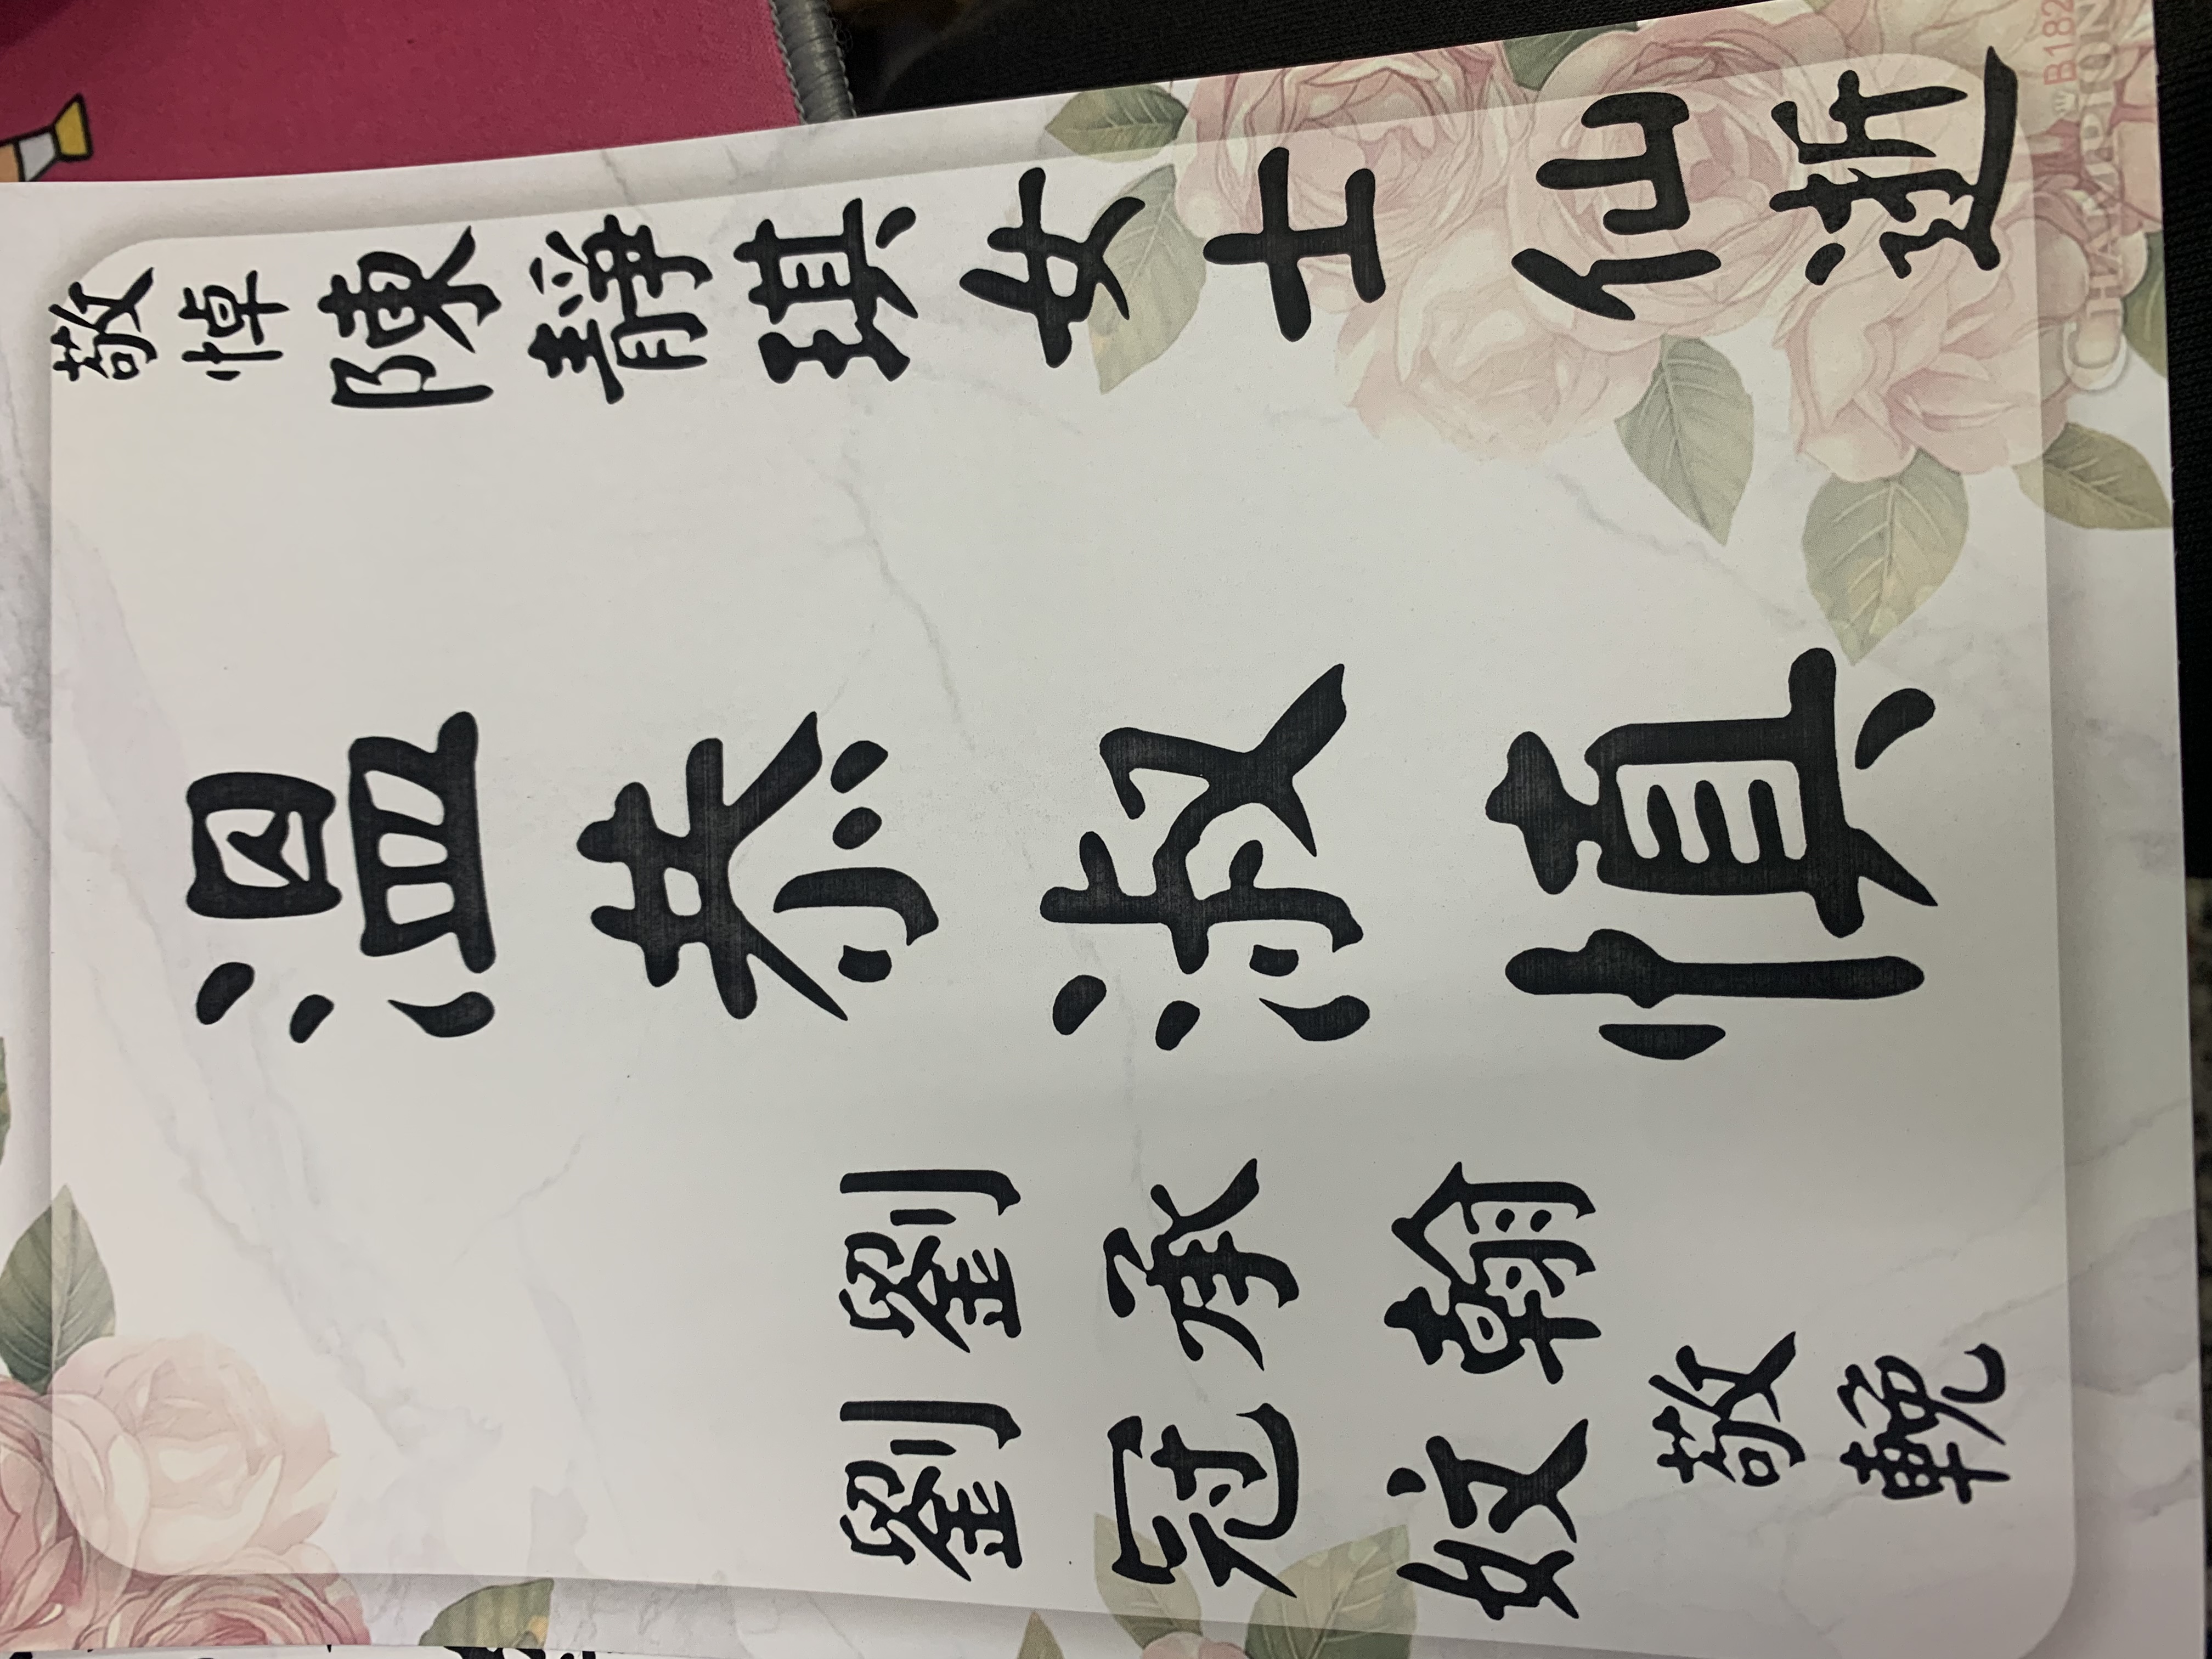 敬悼 陳靜琪女士 仙逝
溫恭淑慎
劉承翰
劉冠妏
敬輓
B182
CHAMPION